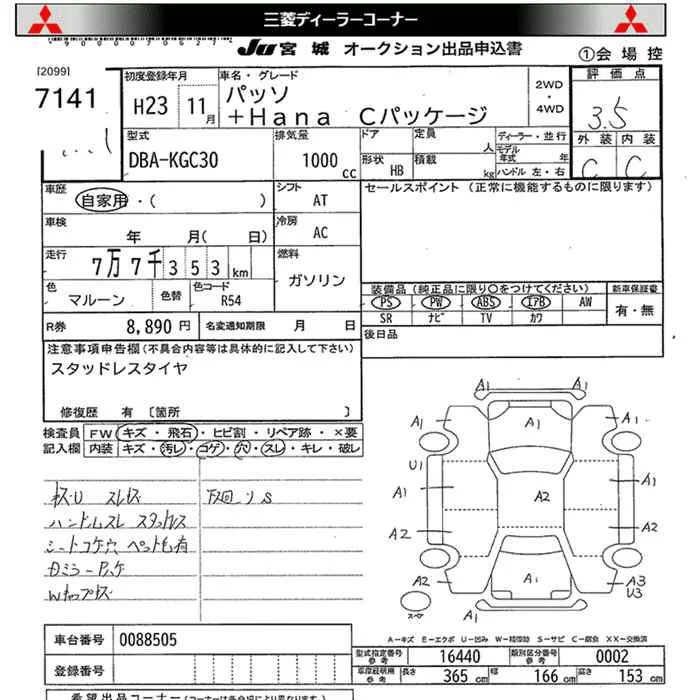 三菱ディーラーコーナー
JU 宮城 オークション出品申込書
①会場控
[2099]
7141
初度登録年月
H23 11月
車名・グレード
パッソ
+Hana Cパッケージ
2WD
・
4WD
評価点
3.5
外装 内装
C C
型式
DBA-KGC30
排気量
1000 cc
ドア
形状 HB
定員 人
積載 kg
ディーラー・並行
モデル年式 年
ハンドル 左・右
車歴
自家用・( )
シフト
AT
セールスポイント (正常に機能するものに限ります)
車検
年 月( 日)
冷房
AC
走行
7万7千353km
燃料
ガソリン
色
マルーン
色替
色コード
R54
装備品 (純正品に限り○をつけてください)
新車保証書
PS PW ABS エアB AW
SR ナビ TV カワ
有・無
R券 8,890円
名変通知期限 月 日
後日品
注意事項申告欄 (不具合内容等は具体的に記入して下さい)
スタッドレスタイヤ
修復歴 有 〔箇所 〕
検査員 FW キズ・飛石・ヒビ割・リペア跡・×要
記入欄 内装 キズ・汚レ・コゲ・穴・スレ・キレ・破レ
下回りS
ハンドルスレ スタッドレス
シートコゲ穴 ペット毛有
A1 A1
A1 A1 A1
U1
A1 A2 A1
A2 A2
A2 A1 A3
U3
スペア
A1 A1
A-キズ E-エクボ U-凹み W-補修跡 S-サビ C-腐食 XX-交換済
車台番号 0088505
登録番号
型式指定番号 参考 16440
類別区分番号 参考 0002
車庫証明用 参考 長さ 365 cm 幅 166 cm 高さ 153 cm
希望出品コーナー